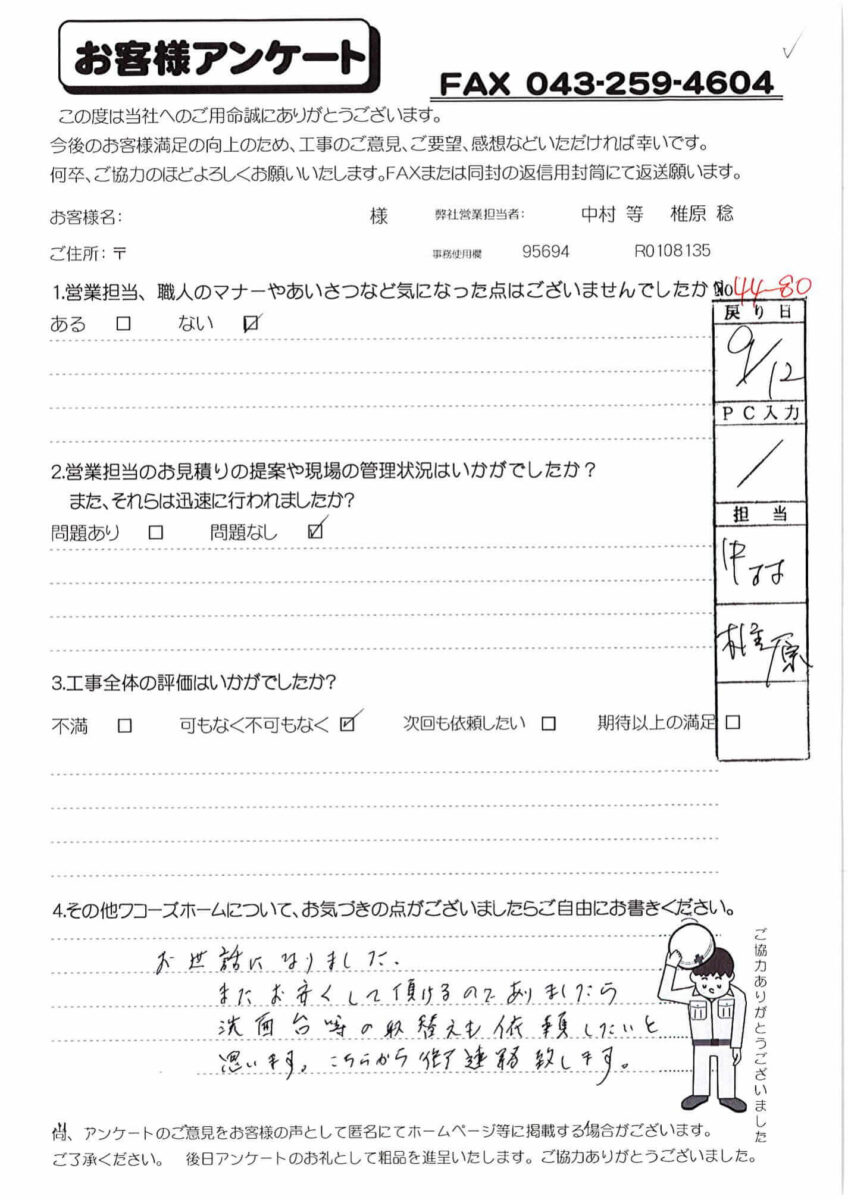 お客様アンケート
FAX 043-259-4604
この度は当社へのご用命誠にありがとうございます。
今後のお客様満足の向上のため、工事のご意見、ご要望、感想などいただければ幸いです。
何卒、ご協力のほどよろしくお願いいたします。FAXまたは同封の返信用封筒にて返送願います。
お客様名: 様 弊社営業担当者: 中村 等 椎原 稔
ご住所:〒 事務使用欄 95694 R0108135
1.営業担当、職人のマナーやあいさつなど気になった点はございませんでしたか
No 44-80
ある □ ない ☑
戻り日
9/12
PC入力
/
2.営業担当のお見積りの提案や現場の管理状況はいかがでしたか?
また、それらは迅速に行われましたか?
問題あり □ 問題なし ☑
担当
中村
椎原
3.工事全体の評価はいかがでしたか?
不満 □ 可もなく不可もなく ☑ 次回も依頼したい □ 期待以上の満足 □
4.その他ワコーズホームについて、お気づきの点がございましたらご自由にお書きください。
お世話になりました。
またお安くして頂けるのでありましたら
洗面台等の取替えも依頼したいと
思います。こちらから御連絡致します。
ご協力ありがとうございました
尚、アンケートのご意見をお客様の声として匿名にてホームページ等に掲載する場合がございます。
ご了承ください。 後日アンケートのお礼として粗品を進呈いたします。ご協力ありがとうございました。